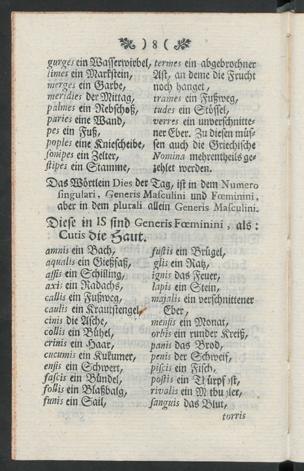 ) 8 (
gurges ein Wasserwirbel,
limes ein Markstein,
merges ein Garbe,
meridies der Mittag,
palmes ein Rebschoß,
paries eine Wand,
pes ein Fuß,
poples eine Kniescheibe,
sonipes ein Zelter,
stipes ein Stamme,
termes ein abgebrochner
Ast, an deme die Frucht
noch hanget,
trames ein Fußweg,
tudes ein Stössel,
verres ein unverschnitte-
ner Eber. Zu diesen müs-
sen auch die Griechische
Nomina mehrentheils ge-
zehlet werden.
Das Wörtlein Dies der Tag, ist in dem Numero
singulari, Generis Masculini und Fœminini,
aber in dem plurali allein Generis Masculini.
Diese in IS sind Generis Fœminini, als:
Cutis die Haut.
amnis ein Bach,
aqualis ein Gießfaß,
assis ein Schilling,
axis ein Radachs,
callis ein Fußweg,
caulis ein Krautstengel,
cinis die Asche,
collis ein Bühel,
crinis ein Haar,
cucumis ein Kukumer,
ensis ein Schwert,
fascis ein Bündel,
follis ein Blaßbalg,
funis ein Sail,
fustis ein Brügel,
glis ein Ratz,
ignis das Feuer,
lapis ein Stein,
majalis ein verschnittener
Eber,
mensis ein Monat,
orbis ein runder Kreiß,
panis das Brod,
penis der Schweif,
piscis ein Fisch,
postis ein
rivalis ein
sanguis das Blut,
torris